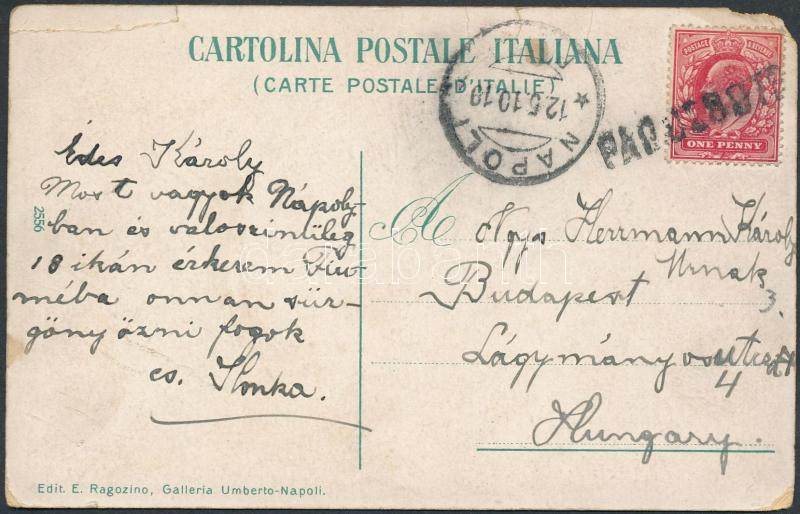 CARTOLINA POSTALE ITALIANA
(CARTE POSTALE D'ITALIE)
NAPOLI
12.5.10.19
POSTAGE & REVENUE
ONE PENNY
PAQUEBOT
Édes Károly
Most vagyok Nápoly-
ban és valoszinüleg
18 ikán érkerem Fiu-
méba onnan sür-
gönyözni fogok
cs. Ilonka.
2556
A
Herrmann Károly
Urnak
Budapest
3.
Lágymányos utcza
4
Hungary.
Edit. E. Ragozino, Galleria Umberto-Napoli.
darabanth